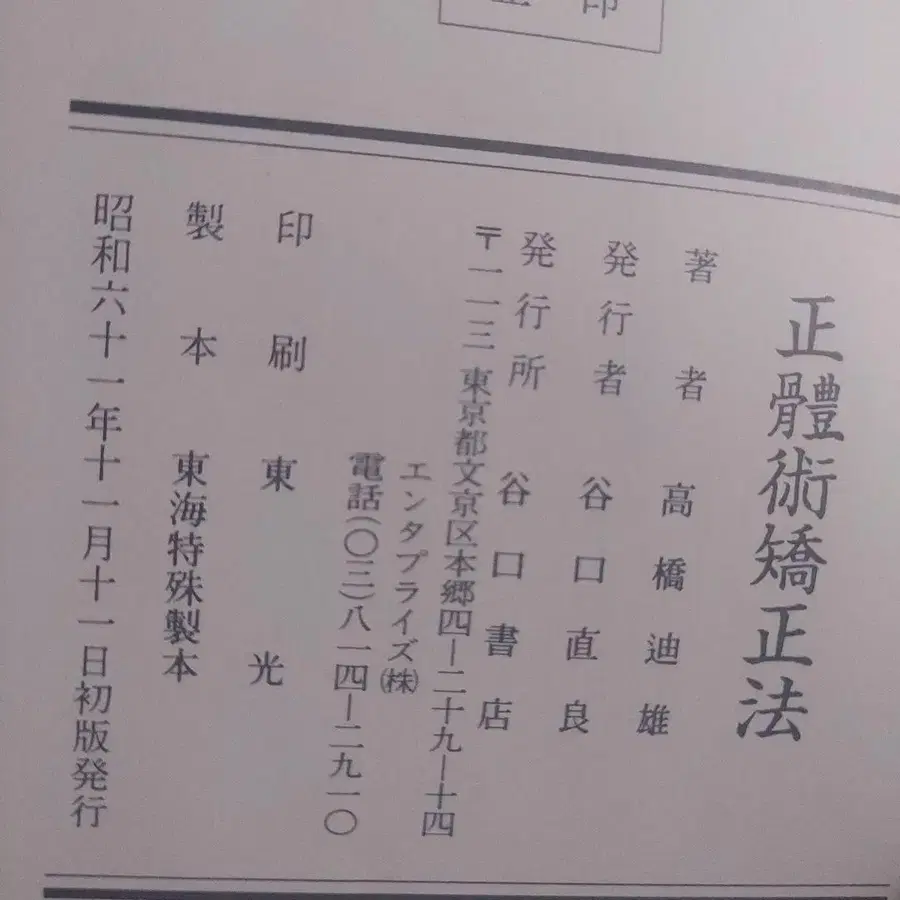 正體術矯正法
著者 高橋迪雄
発行者 谷口直良
発行所 谷口書店
〒一一三 東京都文京区本郷四ー二十九ー十四
エンタプライズ㈱
電話(〇三)八一四ー二九一〇
印刷 東光
製本 東海特殊製本
昭和六十一年十一月十一日初版発行